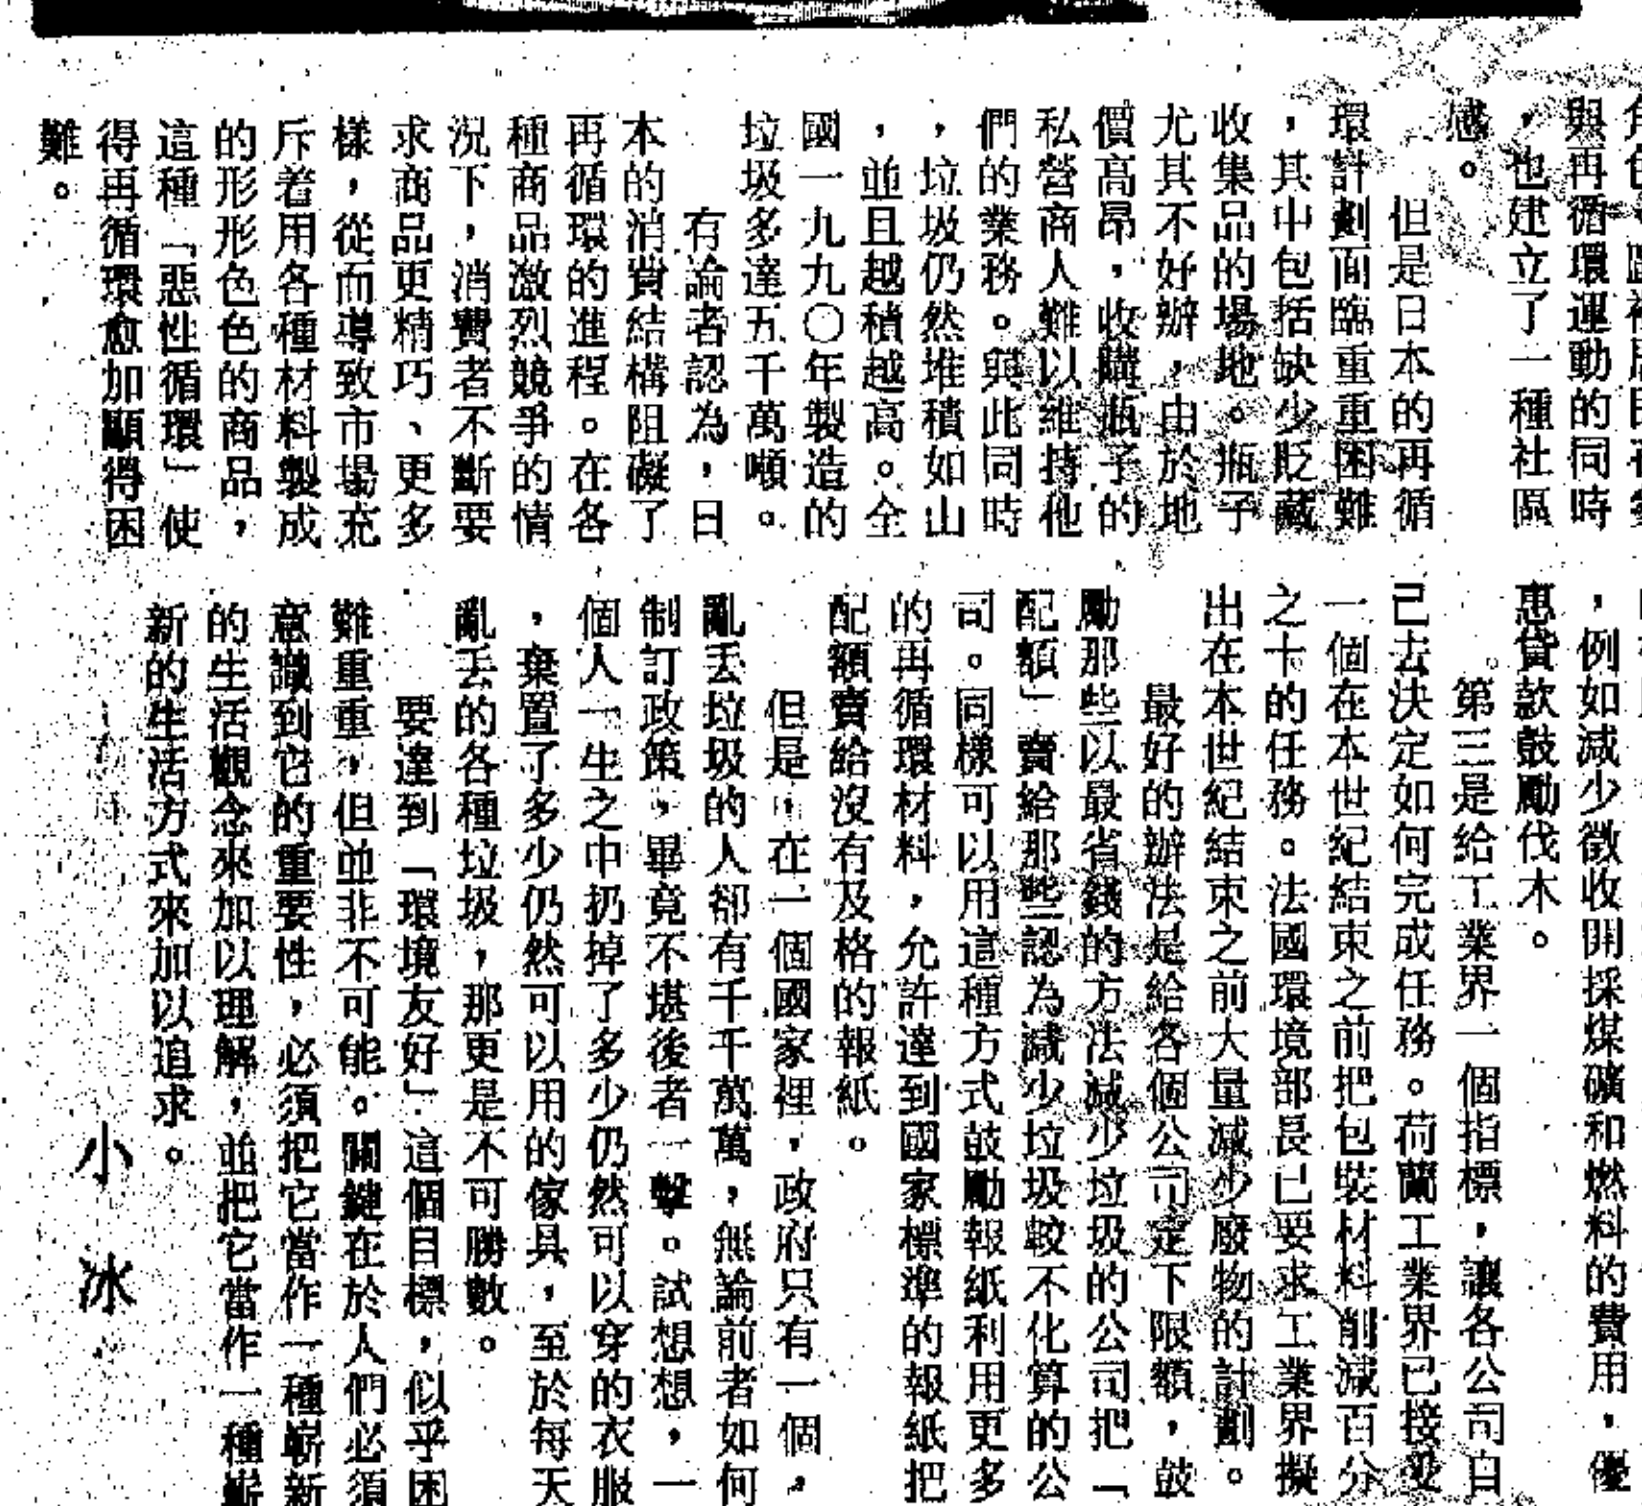 與再循環運動的同時
，也建立了一種社區
感。
但是日本的再循
環計劃面臨重重困難
，其中包括缺少貯藏
收集品的場地。瓶子
尤其不好辦，由於地
價高昂，收購瓶子的
私營商人難以維持他
們的業務。與此同時
，垃圾仍然堆積如山
，並且越積越高。全
國一九九〇年製造的
垃圾多達五千萬噸。
有論者認為，日
本的消費結構阻礙了
再循環的進程。在各
種商品激烈競爭的情
況下，消費者不斷要
求商品更精巧、更多
樣，從而導致市場充
斥着用各種材料製成
的形形色色的商品，
這種「惡性循環」使
得再循環愈加顯得困
難。
，例如減少徵收開採煤礦和燃料的費用，優
惠貸款鼓勵伐木。
第三是給工業界一個指標，讓各公司自
己去決定如何完成任務。荷蘭工業界已接受
一個在本世紀結束之前把包裝材料削減百分
之十的任務。法國環境部長已要求工業界擬
出在本世紀結束之前大量減少廢物的計劃。
最好的辦法是給各個公司定下限額，鼓
勵那些以最省錢的方法減少垃圾的公司把「
配額」賣給那些認為減少垃圾較不化算的公
司。同樣可以用這種方式鼓勵報紙利用更多
的再循環材料，允許達到國家標準的報紙把
配額賣給沒有及格的報紙。
但是，在一個國家裡，政府只有一個，
亂丟垃圾的人卻有千千萬萬，無論前者如何
制訂政策，畢竟不堪後者一擊。試想想，一
個人一生之中扔掉了多少仍然可以穿的衣服
，棄置了多少仍然可以用的傢具，至於每天
亂丟的各種垃圾，那更是不可勝數。
要達到「環境友好」這個目標，似乎困
難重重，但並非不可能。關鍵在於人們必須
意識到它的重要性，必須把它當作一種嶄新
的生活觀念來加以理解，並把它當作一種嶄
新的生活方式來加以追求。
小冰